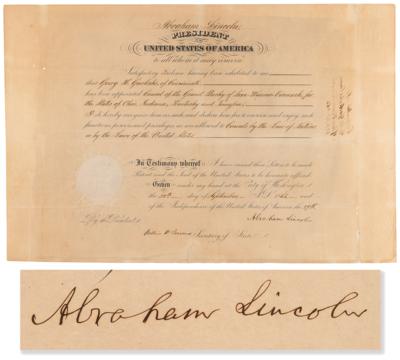 Abraham Lincoln,
PRESIDENT
UNITED STATES OF AMERICA
to all whom it may concern
Satisfactory Evidence having been exhibited to me
that Georg of Cincinnati
has been appointed Consul of the Grand Duchy of for
the States of Ohio, Indiana, Kentucky and
I do hereby recognize him as such, and declare him free to exercise and enjoy such
functions, powers and privileges as are allowed to Consuls by the Law of Nations
or by the Laws of the United States
In Testimony whereof I have caused these Letters to be made
Patent and the Seal of the United States to be hereunto affixed
Given under my hand at the City of Washington
the day of September A.D. and
of the Independence of the United States of America, the
Abraham Lincoln
By the President
Secretary of State
Abraham Lincoln